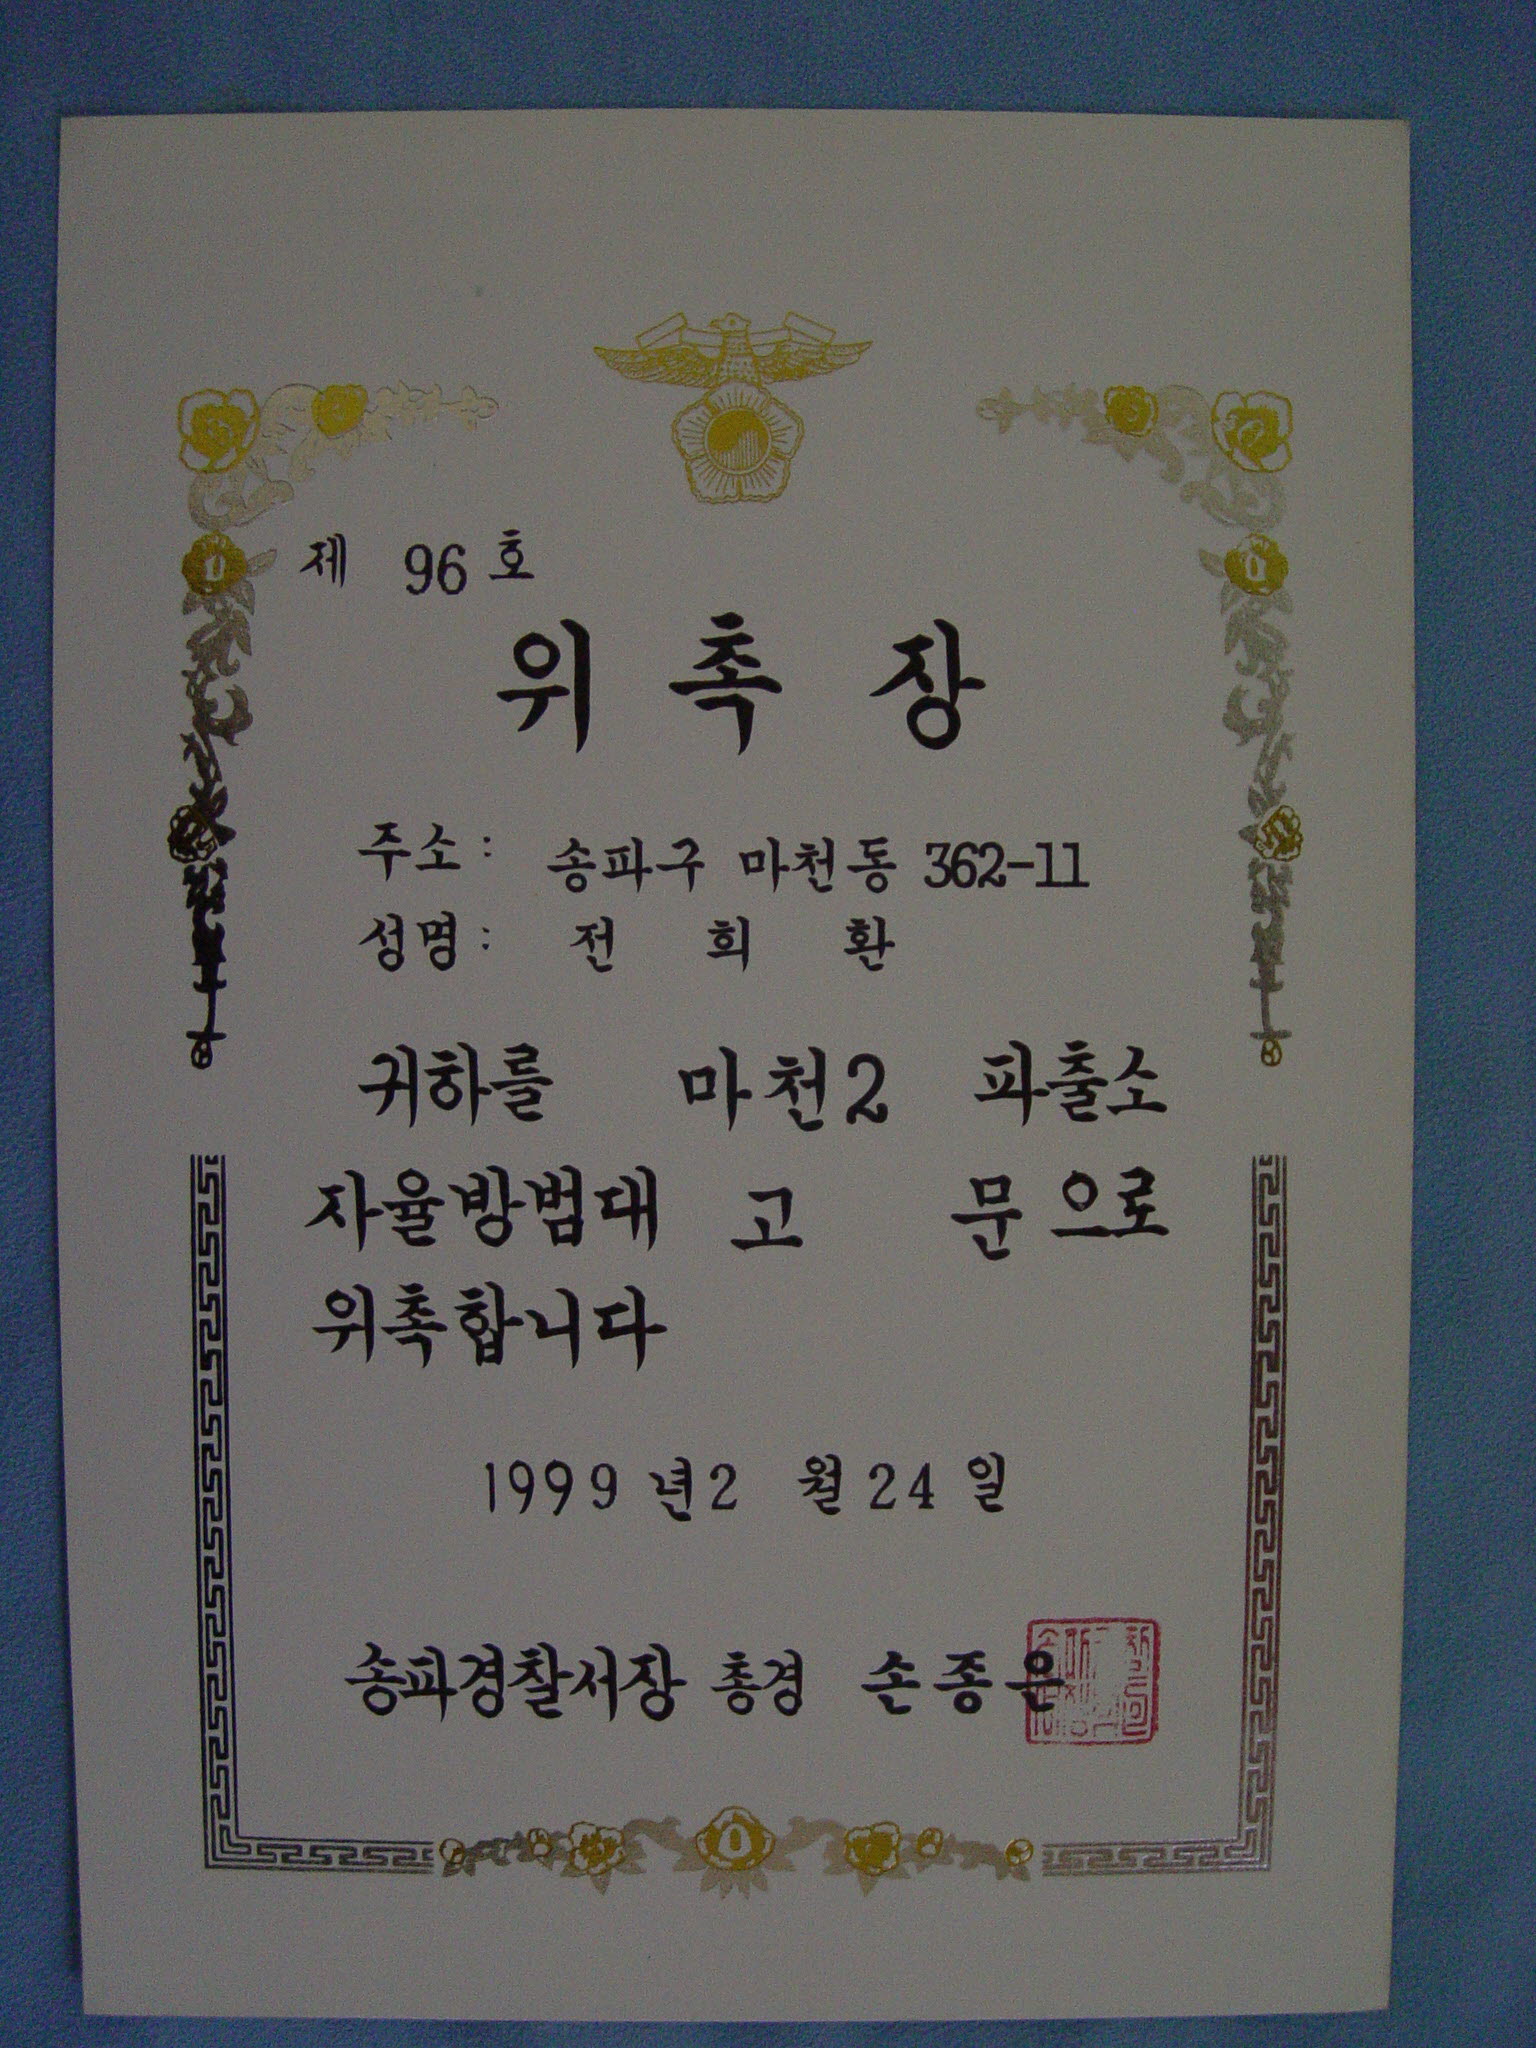 제 96 호
위 촉 장
주소 : 송파구 마천동 362-11
성명 : 전 희 환
귀하를 마천2 파출소
자율방범대 고 문 으로
위촉합니다
1999 년 2 월 24 일
송파경찰서장 총경 손종은